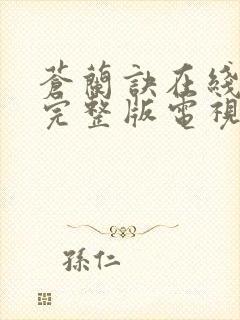 蒼蘭訣在綫
完整版電視
孫仁